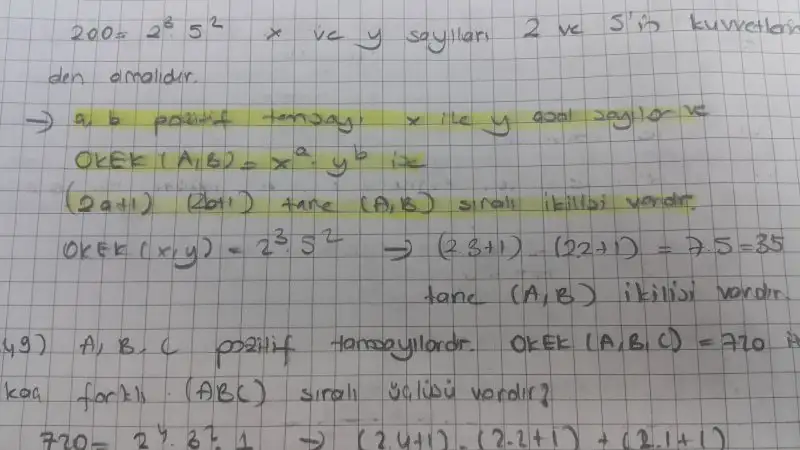 200= 2³. 5² x ve y sayıları 2 ve 5'in kuvvetlerin
den olmalıdır.
→ a, b pozitif tamsayı x ile y asal sayılar ve
OKEK (A,B) = xᵃ. yᵇ ise
(2a+1) (2b+1) tane (A,B) sıralı ikilisi vardır.
OKEK (x,y) = 2³. 5² → (2.3+1) . (2.2+1) = 7.5=35
tane (A,B) ikilisi vardır.
49) A, B, C pozitif tamsayılardır. OKEK (A,B,C) = 720
kaç farklı (ABC) sıralı üçlüsü vardır?
720= 2⁴. 3². 1 → (2.4+1) . (2.2+1) + (2.1+1)